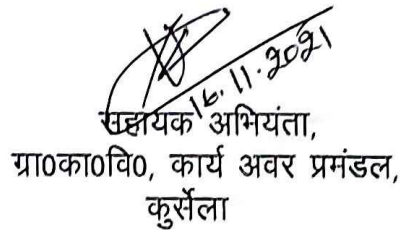 16.11.2021
सहायक अभियंता,
ग्रा0का0वि0, कार्य अवर प्रमंडल,
कुर्सेला